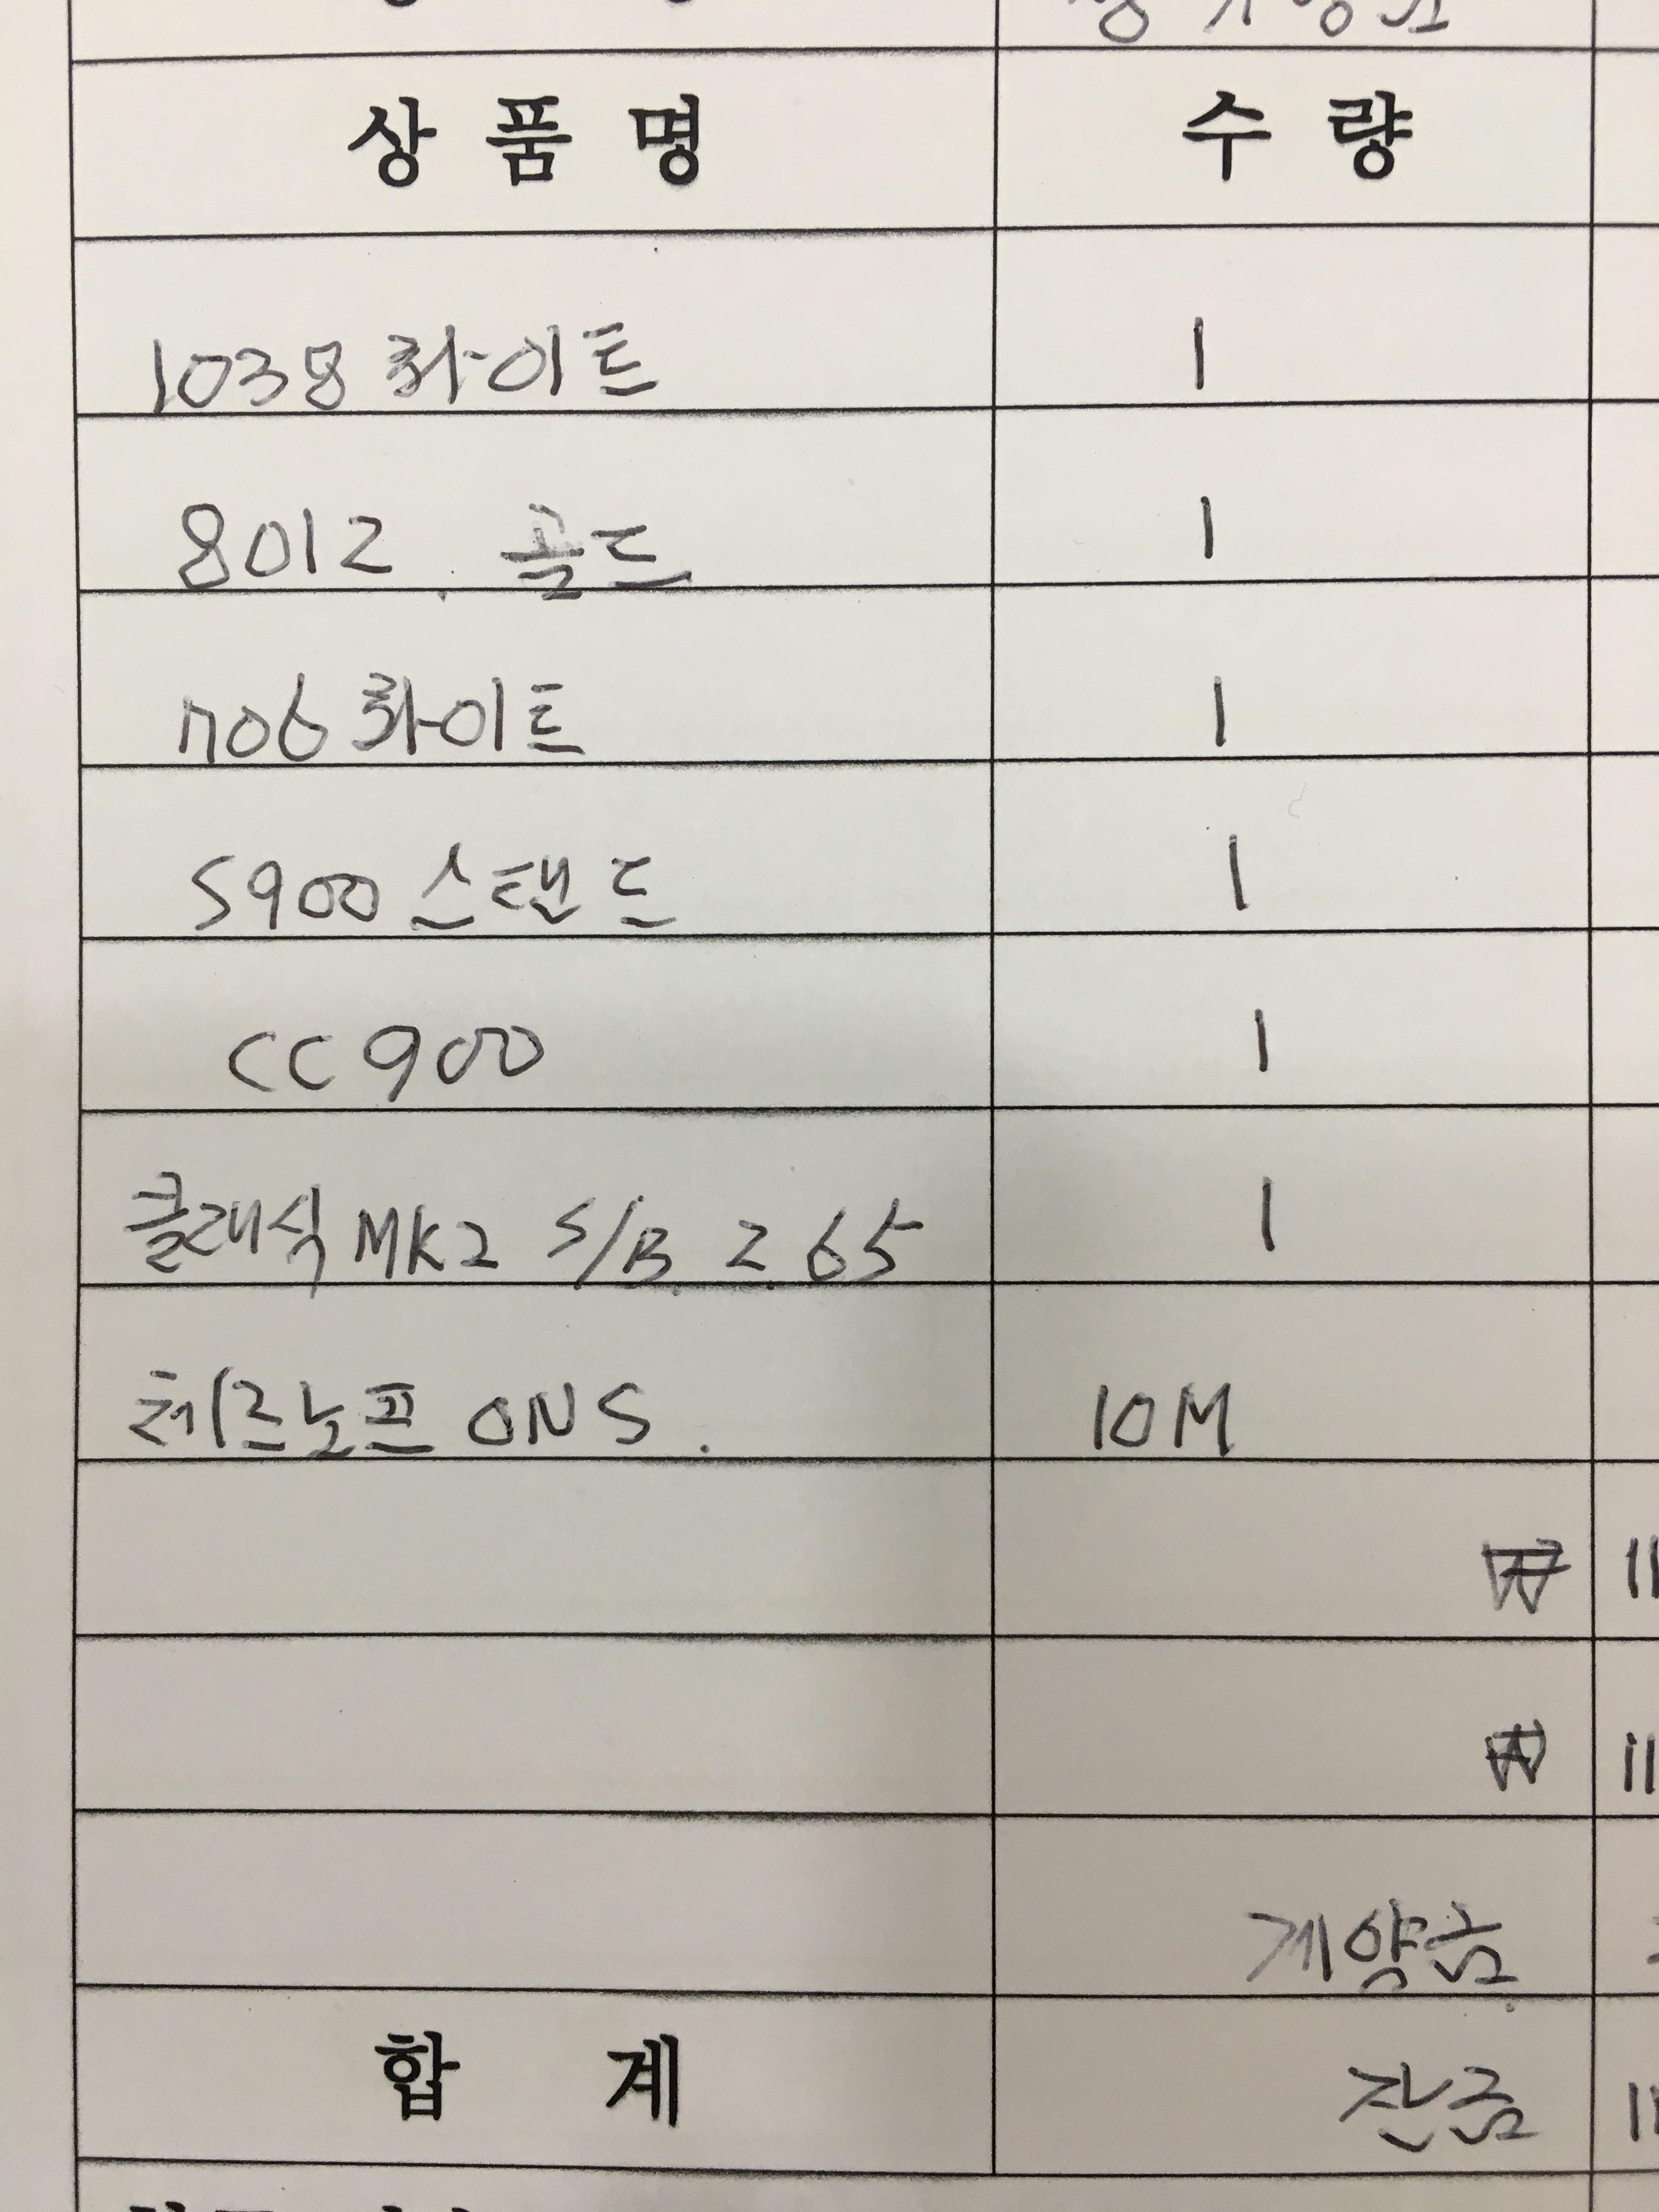 상 품 명 수 량
1038 화이트 1
8012. 골드 1
706 화이트 1
S900 스탠드 1
CC900 1
클래식 MK2 S/B 2.65 1
체르노프 ONS. 10M
₩
₩
계약금
합 계 잔금